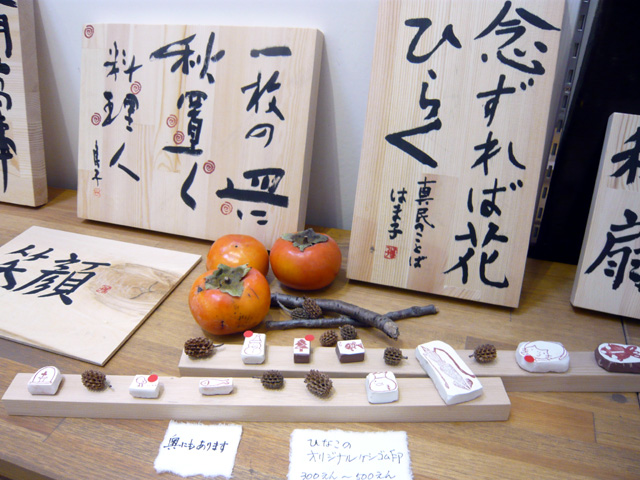 一枚の皿に
秋置く
料理人
念ずれば花
ひらく
真民のことば
はま子
笑顔
扇
奥にもあります
ひなこの
オリジナルケシゴム印
300えん〜500えん